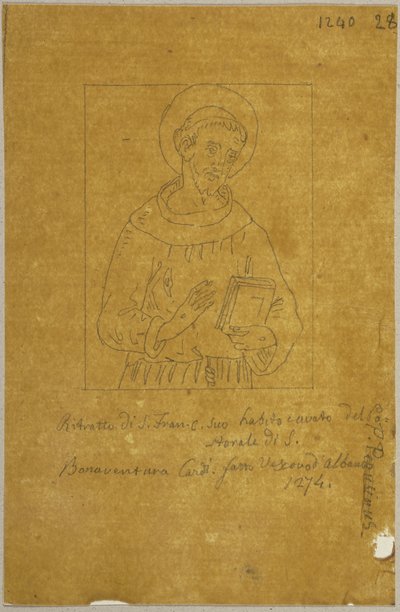 1240 28
Ritratto di S. Fran-c. suo habito cavato del
storale di S.
Bonaventura Card. fatto Vescovo d'Albano
1274.